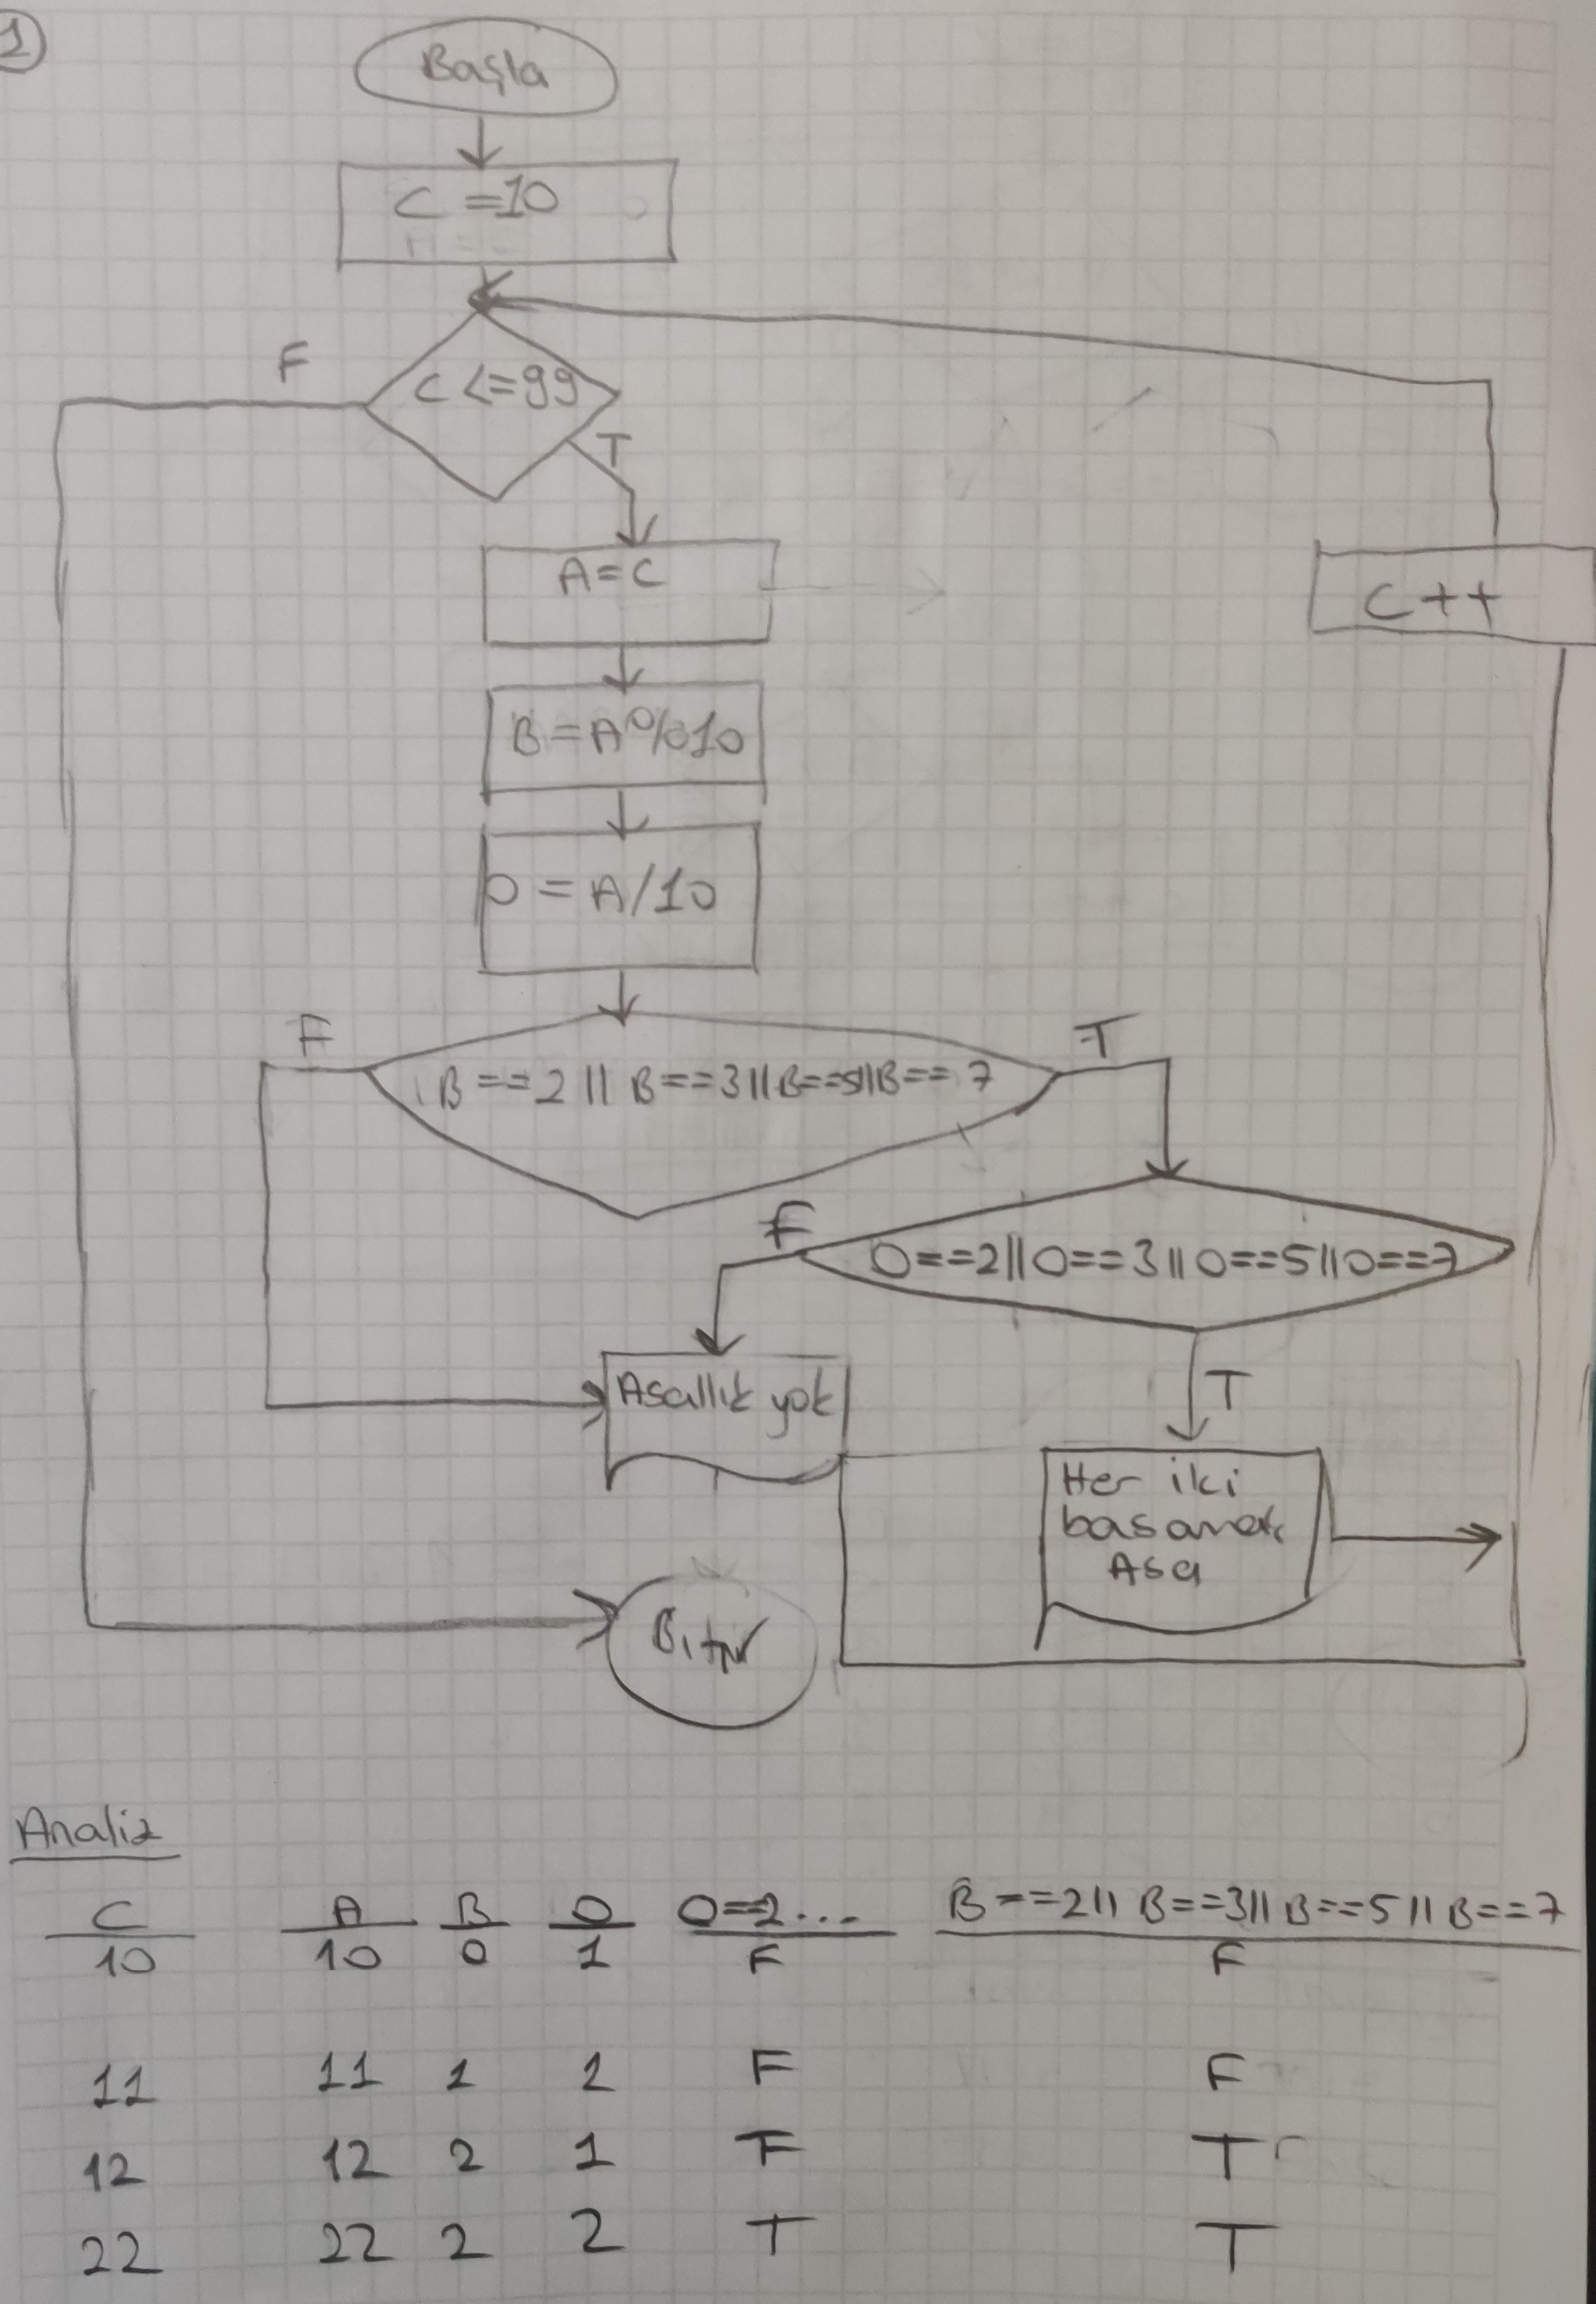 1
Başla
C = 10
C <= 99
F
T
A = C
C++
B = A % 10
O = A / 10
F
T
B == 2 || B == 3 || B == 5 || B == 7
F
O == 2 || O == 3 || O == 5 || O == 7
T
Asallık yok
Her iki
basamak
Asa
Bitir
Analiz
C A B O O==2... B == 2 || B == 3 || B == 5 || B == 7
10 10 0 1 F F
11 11 1 1 F F
12 12 2 1 F T
22 22 2 2 T T